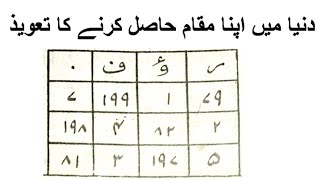 دنیا میں اپنا مقام حاصل کرنے کا تعویذ
ر ؤ ف ۰
۷۹ ۱ ۱۹۹ ۷
۲ ۸۲ ۴ ۱۹۸
۵ ۱۹۷ ۳ ۸۱